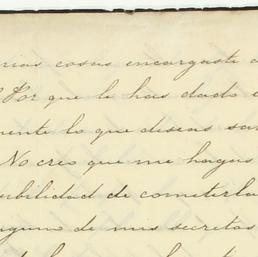 rias cosas encargaste a
Por que le has dado
mente lo que deseas sa
No creo que me hagas
sibilidad de cometerla
guno de mis secretos